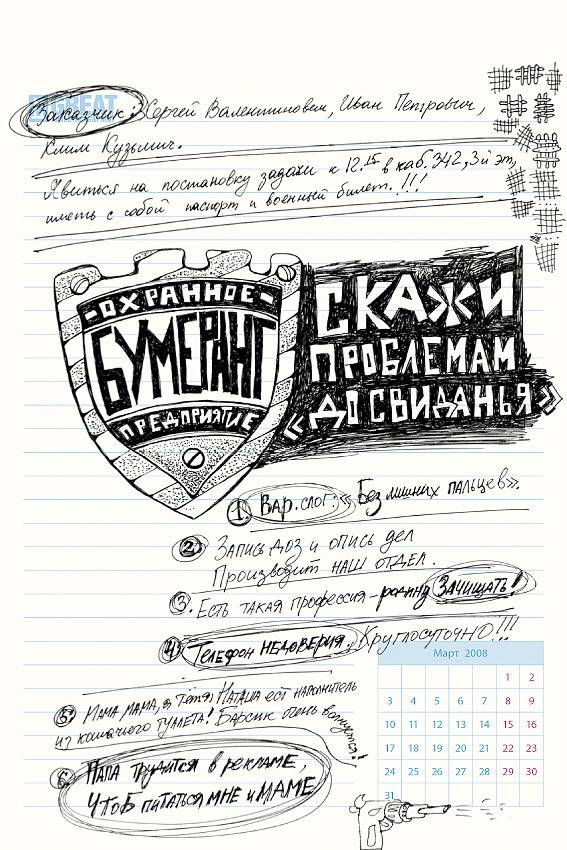 Заказчик: Сергей Валентинович, Иван Петрович,
Клим Кузьмич.
Явиться на постановку задачи к 12.15 в каб. 342, 3й эт,
иметь с собой паспорт и военный билет.!!!
-ОХРАННОЕ-
БУМЕРАНГ
ПРЕДПРИЯТИЕ
СКАЖИ
ПРОБЛЕМАМ
«ДО СВИДАНЬЯ»
1. Вар. слог: «Без лишних пальцев».
2. Запись доз и опись дел
Производит наш отдел.
3. Есть такая профессия - родину ЗАЧИЩАТЬ!
4. Телефон недоверия. Круглосуточно!!!
5. Мама мама, а тётя Наташа ест наполнитель
из кошачьего туалета! Барсик очень волнуется!
6. Папа трудится в рекламе,
чтоб питаться мне и маме
Март 2008
1 2
3 4 5 6 7 8 9
10 11 12 13 14 15 16
17 18 19 20 21 22 23
24 25 26 27 28 29 30
31